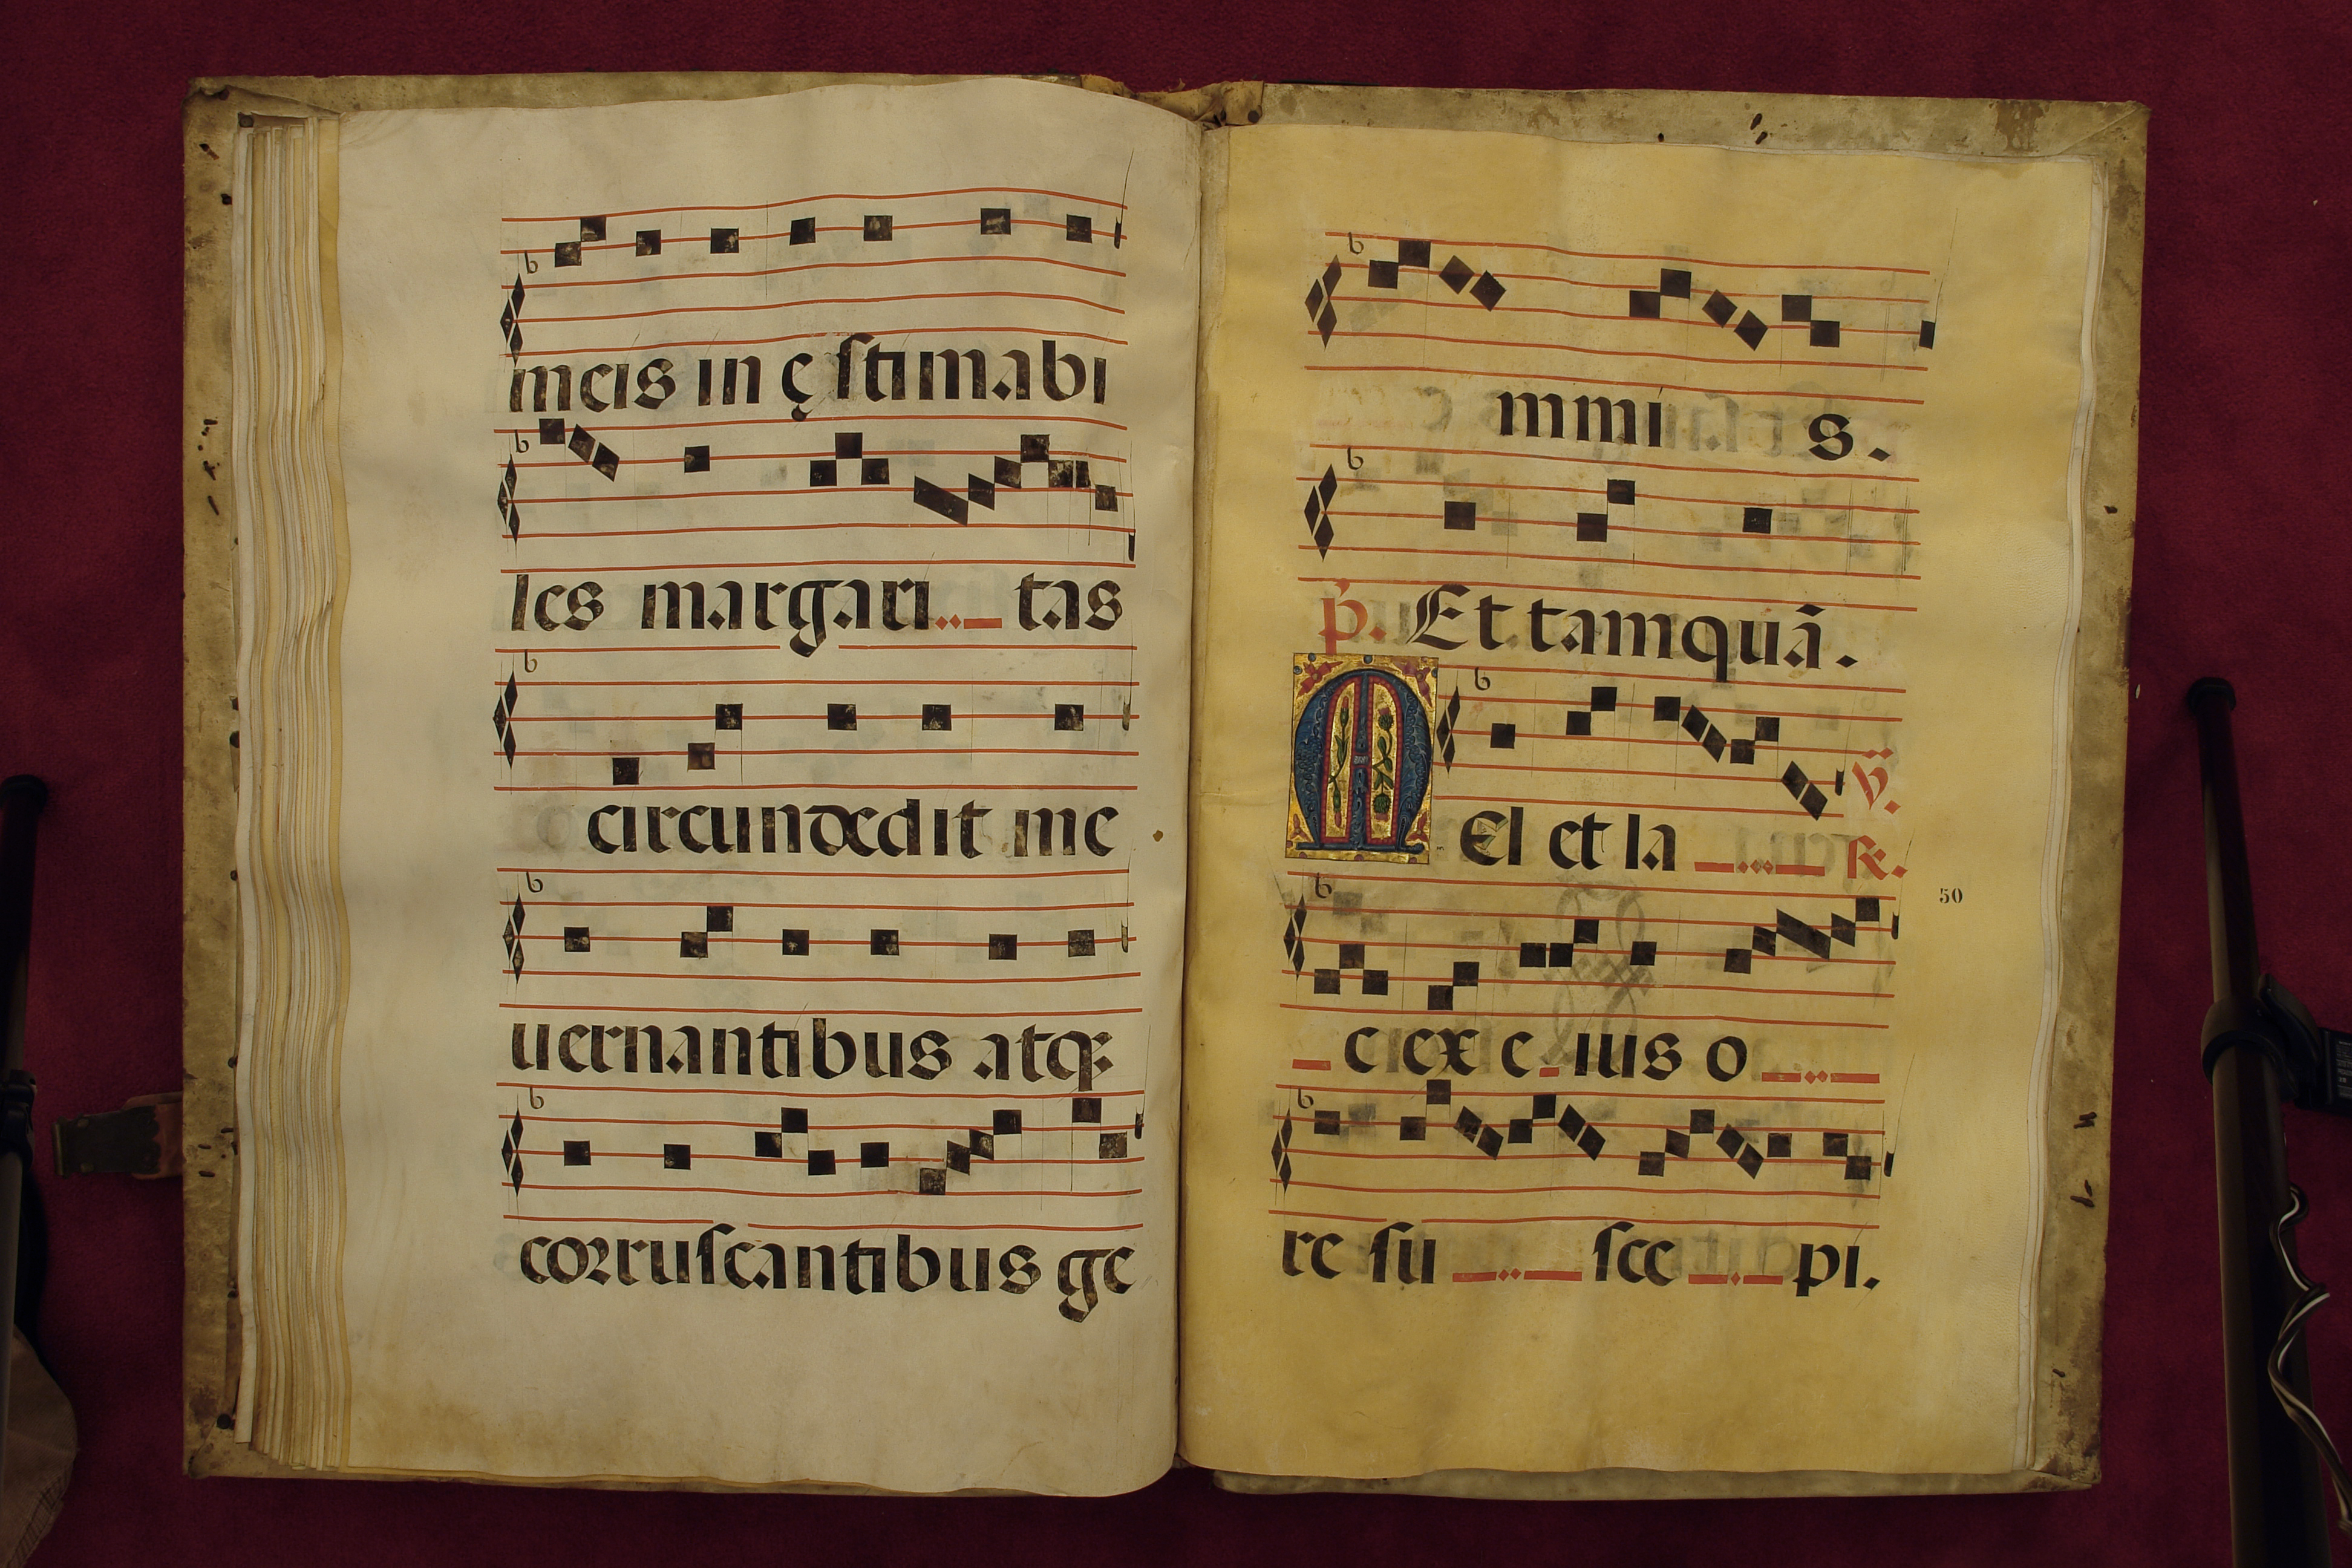 meis in ę stimabi
les margari tas
circundedit me
uernantibus atq
corruscantibus ge
mmi s.
p. Et tamquā.
MEl et la
V.
R.
50
c ex e ius o
re su sce pi.